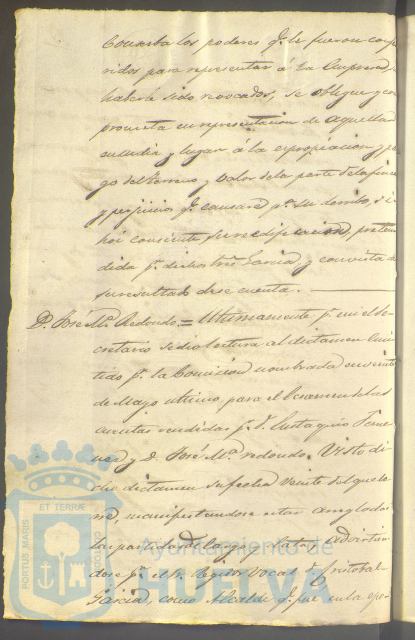 Conserba los poderes qe. le fueron confe
ridos para representar á la Empresa,
haberle sido revocados, se obligue y com
prometa en representacion de aquella
en su dia y lugar á la expropiacion y pa
go del terreno y valor de la parte de la finca
y perjuicio qe. causare pr. su derribo,
hoi consiente su reedificacion, preten
dida pr. dichos Sres. Garcia, y con vista de
su resultado dese cuenta.
D. José Mª. Redondo = Ultimamente pr. mi el Se
cretario se dio lectura al dictamen emi
tido pr. la Comision nombrada en veinte
de Mayo ultimo, para el Ecsamen de las
cuentas rendidas pr. D. Eustaquio
y D. José Mª. redondo. Visto di
cho dictamen su fecha veinte del que
manifestandose estar arregladas
las partidas de Cargo y Data, y advirtien
dose pr. el Sr. Regidor Vocal D. Cristobal
Garcia, como Alcalde qe. fue en la epo
PORTUS MARIS ET TERRÆ CUSTODIA
Ayuntamiento de
HUELVA